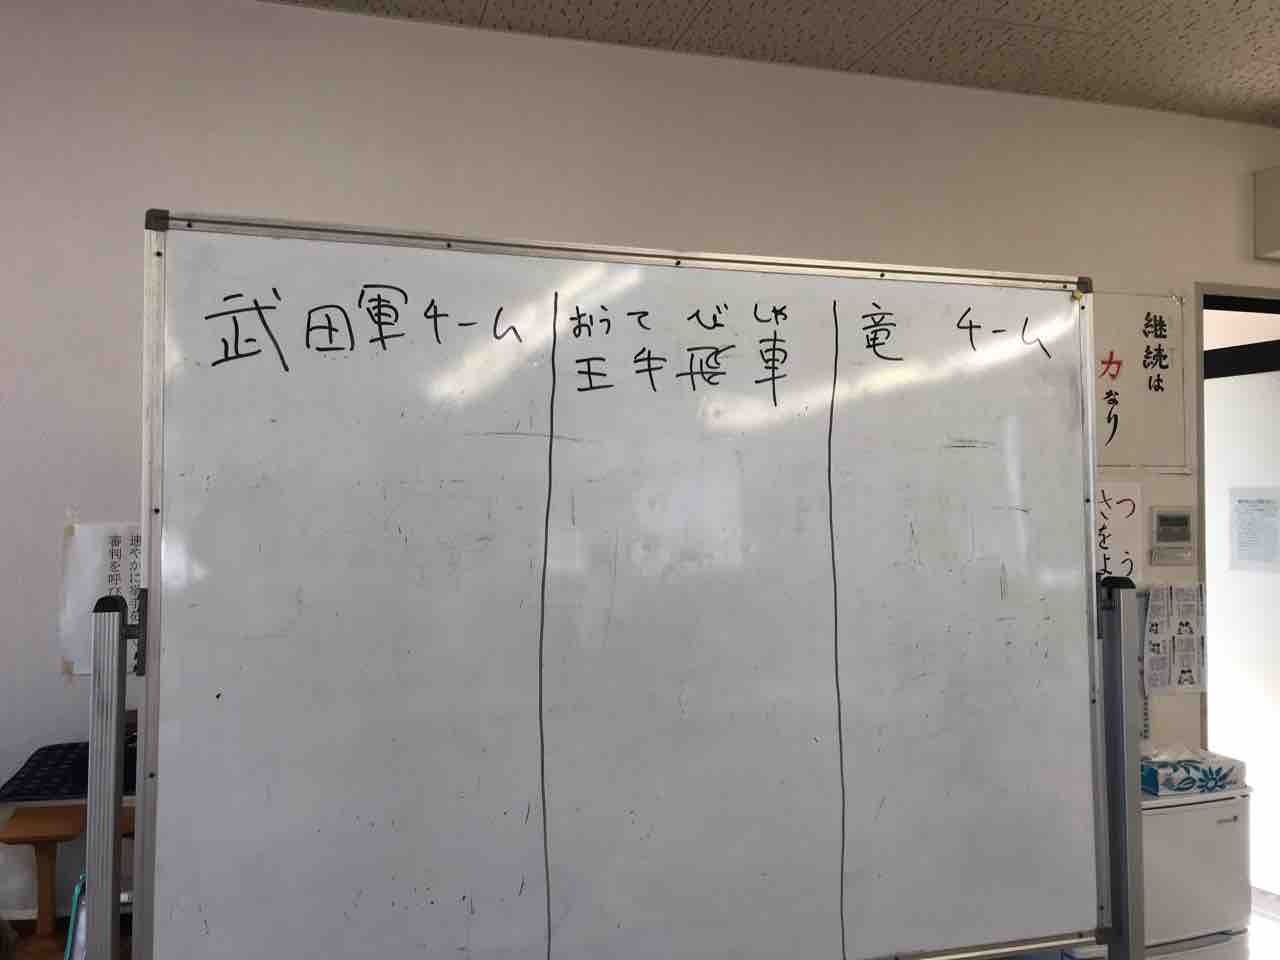 武田軍チーム
おうてびしゃ
王手飛車
竜 チーム
継続は
力なり
つ う
さをよ
速やかに
審判を呼び